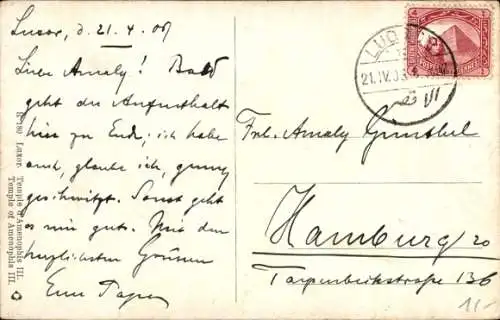 Luxor, d. 21.4.06
Liebe Amaly! Bald
geht der Aufenthalt
hier zu Ende; ich habe
auch, glaube ich, genug
geschwitzt. Sonst geht
es mir gut. Mit den
herzlichsten Grüssen
Euer
Frl. Amaly
Hamburg/20
Tarpenbekstraße 136
11.-
LUQSOR
21.IV.0
الاقصر
N 180 Luxor. Temple d'Amenophis III.
Temple of Amenophis III.